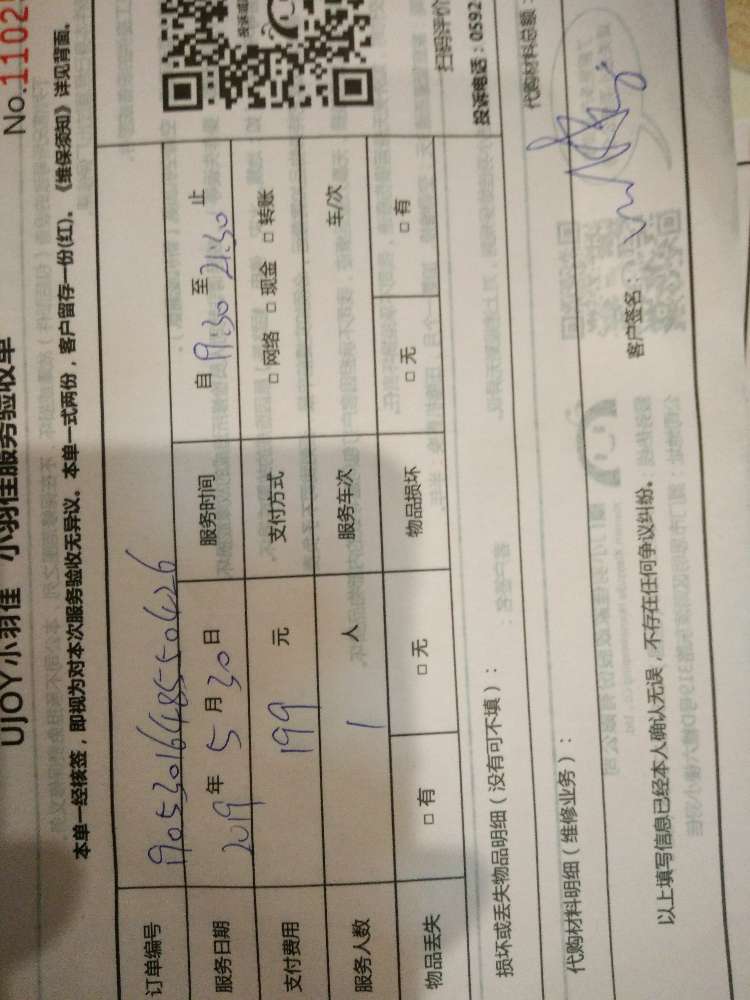 No.1102
UJOY小羽佳 小羽佳服务验收单
本单一经核签，即视为对本次服务验收无异议。本单一式两份，客户留存一份(红)。《维保须知》详见背面。
订单编号 190530164855
服务日期 2019 年 5 月 30 日 服务时间 自 19:30 至 21:30 止
支付费用 199 元 支付方式 □ 网络 □ 现金 □ 转账
服务人数 1 人 服务车次 车/次
物品丢失 □ 有 □ 无 物品损坏 □ 无 □ 有
扫码评价
损坏或丢失物品明细（没有可不填）：
投诉电话：0592
代购材料明细（维修业务）： 代购材料总额：
以上填写信息已经本人确认无误，不存在任何争议纠纷。 客户签名：